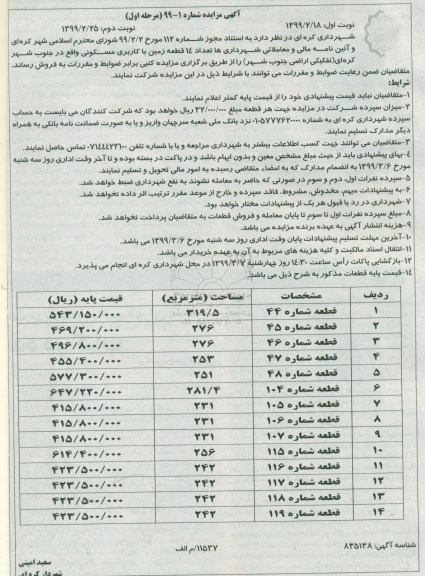 آگهی مزایده شماره ۱-۹۹ (مرحله اول)
نوبت اول: ۱۳۹۹/۲/۱۸ نوبت دوم: ۱۳۹۹/۲/۲۵
شهرداری کره ای در نظر دارد به استناد مجوز شماره ۱۱۲ مورخ ۹۹/۲/۲ شورای محترم اسلامی شهر کره ای
و آئین نامه مالی و معاملاتی شهرداری ها تعداد ۱۴ قطعه زمین با کاربری مسکونی واقع در جنوب شهر
کره ای (تفکیکی اراضی جنوب شهر) را از طریق برگزاری مزایده کتبی برابر ضوابط و مقررات به فروش رساند.
متقاضیان ضمن رعایت ضوابط و مقررات می توانند با شرایط ذیل در این مزایده شرکت نمایند.
شرایط:
۱-متقاضیان نباید قیمت پیشنهادی خود را از قیمت پایه کمتر اعلام نمایند.
۲-میزان سپرده شرکت در مزایده جهت هر قطعه مبلغ ۳۲/۰۰۰/۰۰۰ ریال خواهد بود که شرکت کنندگان می بایست به حساب
سپرده شهرداری کره ای به شماره ۰۱۰۵۷۷۷۶۲۰۰۰ نزد بانک ملی شعبه سرچهان واریز و یا به صورت ضمانت نامه بانکی به همراه
دیگر مدارک تسلیم نمایند.
۳-متقاضیان می توانند جهت کسب اطلاعات بیشتر به شهرداری مراجعه و یا با شماره تلفن ۰۷۱۴۴۴۲۳۱۰۰ تماس حاصل نمایند.
۴-بهای پیشنهادی باید از حیث مبلغ مشخص معین و بدون ابهام باشد و در پاکت در بسته بوده و تا آخر وقت اداری روز سه شنبه
مورخ ۱۳۹۹/۳/۶ به انضمام مدارک که به امضاء متقاضی رسیده به امور مالی تحویل و تسلیم نمایند.
۵-سپرده نفرات اول، دوم و سوم در صورتی که حاضر به معامله نشوند به نفع شهرداری ضبط خواهد شد.
۶-به پیشنهادات مبهم، مخدوش، مشروط، فاقد سپرده و خارج از موعد مقرر ترتیب اثر داده نخواهد شد.
۷-شهرداری در رد یا قبول هر یک از پیشنهادات مختار خواهد بود.
۸-مبلغ سپرده نفرات اول تا سوم تا پایان معامله و فروش قطعات به متقاضیان پرداخت نخواهد شد.
۹-هزینه انتشار آگهی به عهده برنده مزایده می باشد.
۱۰-آخرین مهلت تسلیم پیشنهادات پایان وقت اداری روز سه شنبه مورخ ۱۳۹۹/۳/۶ می باشد.
۱۱-انتقال اسناد مالکیت و کلیه هزینه های مربوط به آن به عهده خریدار می باشد.
۱۲-بازگشایی پاکات راس ساعت ۱۴:۳۰ روز چهارشنبه ۱۳۹۹/۳/۷ در محل شهرداری کره ای انجام می پذیرد.
۱۴-قیمت پایه قطعات مذکور به شرح ذیل می باشد.
ردیف مشخصات مساحت (مترمربع) قیمت پایه (ریال)
۱ قطعه شماره ۴۴ ۳۱۹/۵ ۵۴۳/۱۵۰/۰۰۰
۲ قطعه شماره ۴۵ ۲۷۶ ۴۶۹/۲۰۰/۰۰۰
۳ قطعه شماره ۴۶ ۲۷۶ ۴۹۶/۸۰۰/۰۰۰
۴ قطعه شماره ۴۷ ۲۵۳ ۴۵۵/۴۰۰/۰۰۰
۵ قطعه شماره ۴۸ ۲۵۱ ۵۷۷/۳۰۰/۰۰۰
۶ قطعه شماره ۱۰۴ ۲۸۱/۴ ۶۴۷/۲۲۰/۰۰۰
۷ قطعه شماره ۱۰۵ ۲۳۱ ۴۱۵/۸۰۰/۰۰۰
۸ قطعه شماره ۱۰۶ ۲۳۱ ۴۱۵/۸۰۰/۰۰۰
۹ قطعه شماره ۱۰۷ ۲۳۱ ۴۱۵/۸۰۰/۰۰۰
۱۰ قطعه شماره ۱۱۵ ۲۵۶ ۶۱۴/۴۰۰/۰۰۰
۱۱ قطعه شماره ۱۱۶ ۲۴۲ ۴۲۳/۵۰۰/۰۰۰
۱۲ قطعه شماره ۱۱۷ ۲۴۲ ۴۲۳/۵۰۰/۰۰۰
۱۳ قطعه شماره ۱۱۸ ۲۴۲ ۴۲۳/۵۰۰/۰۰۰
۱۴ قطعه شماره ۱۱۹ ۲۴۲ ۴۲۳/۵۰۰/۰۰۰
شناسه آگهی: ۸۳۵۱۳۸ ۱۱۵۳۷/م الف
سعید امینی
شهردار کره ای